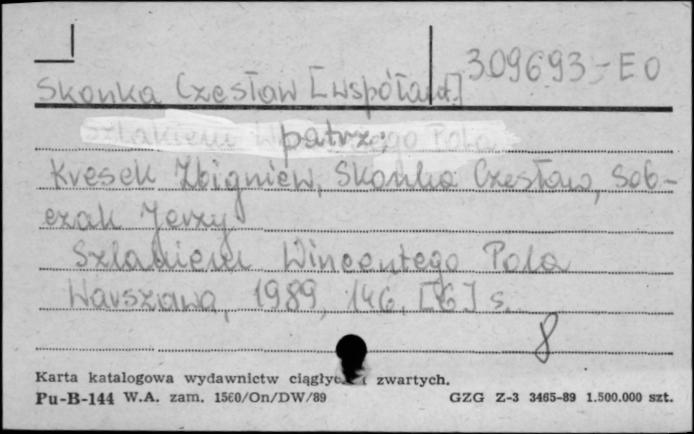 309693-E0
Skonka Czesław [współaut.]
patrz:
Kresek Zbigniew, Skonka Czesław, Sob-
czak Jerzy
Szlakiem Wincentego Pola
Warszawa, 1989, 146, [6] s.
8
Karta katalogowa wydawnictw i zwartych.
Pu-B-144 W.A. zam. 1560/On/DW/89 GZG Z-3 3465-89 1.500.000 szt.